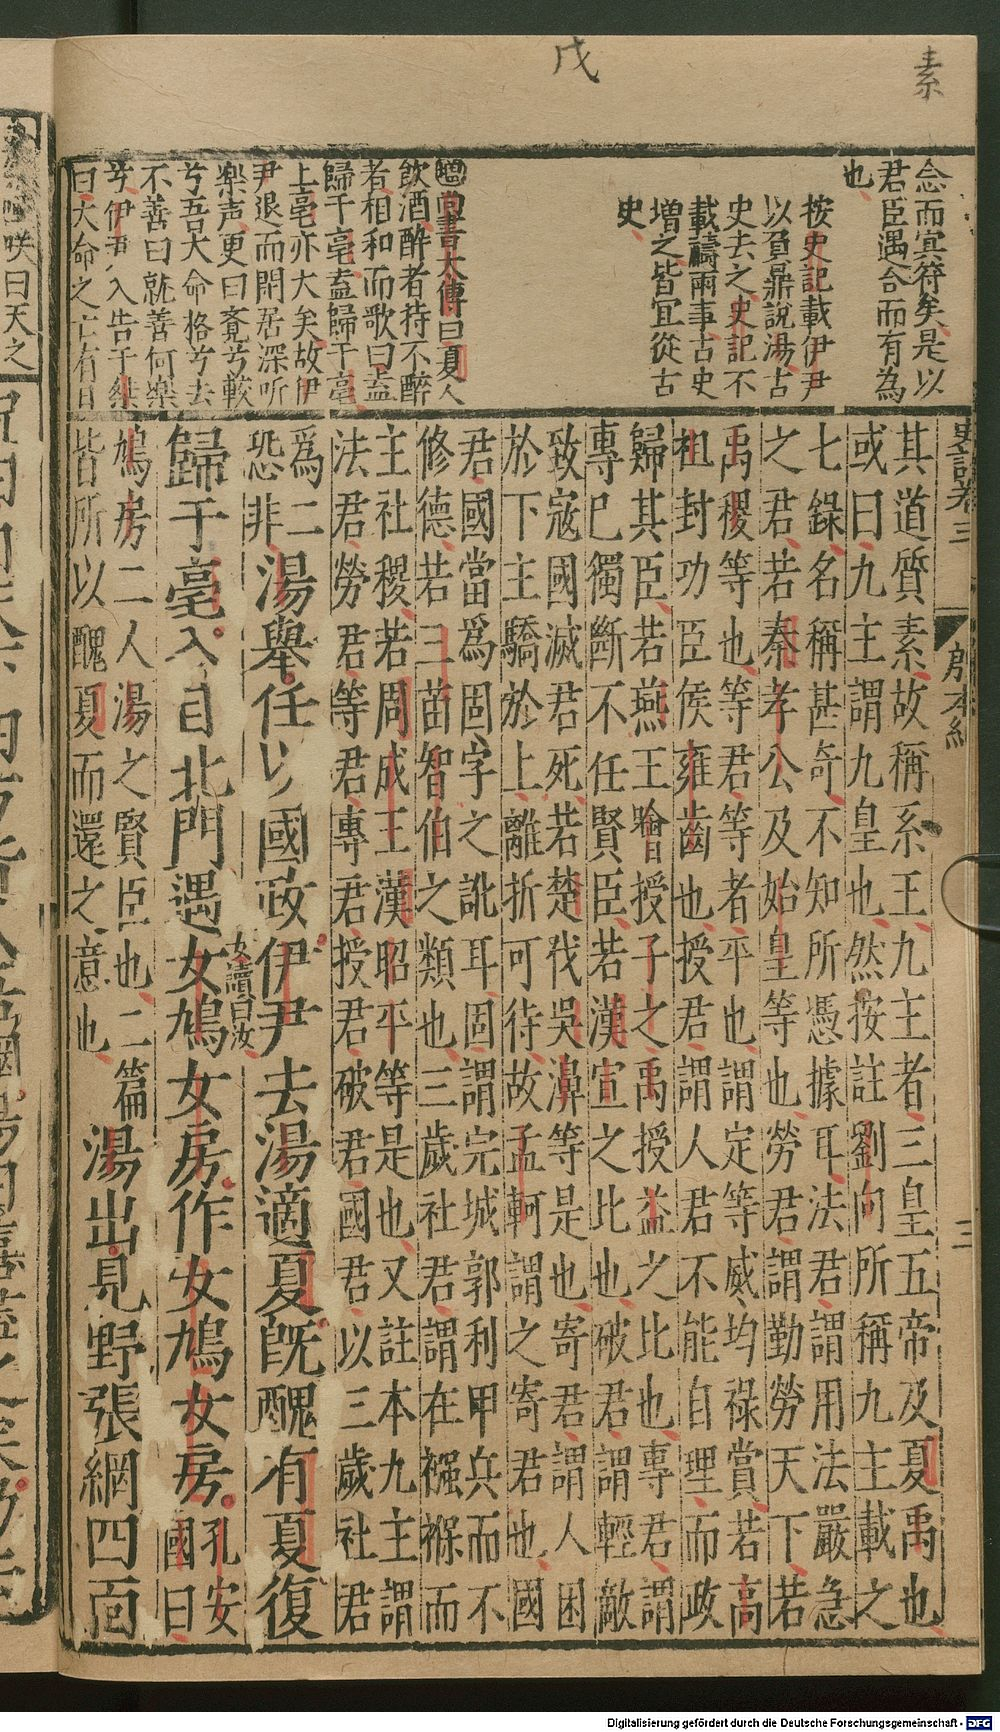 素
戊
念而㝠符矣是以
君臣遇合而有為
也
按史記載伊尹
以負鼎說湯古
史去之史記不
載禱雨事古史
増之皆宜從古
史
尚書大傳曰夏人
飲酒醉者持不醉
者相和而歌曰盍
歸于亳盍歸于亳
上亳亦大矣故伊
尹退而閒居深听
楽声更曰覺兮較
兮吾大命格兮去
不善曰就善何樂
兮伊尹入告于桀
曰大命之亡有日
史記卷三 殷本紀 三
其道質素故稱系王九主者三皇五帝及夏禹也
或曰九主謂九皇也然按註劉向所稱九主載之
七錄名稱甚奇不知所憑據耳法君謂用法嚴急
之君若秦孝公及始皇等也勞君謂勤勞天下若
禹稷等也等君等者平也謂定等威均祿賞若高
祖封功臣侯雍齒也授君謂人君不能自理而政
歸其臣若燕王噲授子之禹授益之比也專君謂
專已獨斷不任賢臣若漢宣之比也破君謂輕敵
致寇國滅君死若楚伐吳濞等是也寄君謂人困
於下主驕於上離折可待故孟軻謂之寄君也國
君國當爲固字之訛耳固謂完城郭利甲兵而不
修德若三苗智伯之類也三歲社君謂在襁褓而
主社稷若周成王漢昭平等是也又註本九主謂
法君勞君等君專君授君破君國君以三歲社君
爲二恐非湯舉任以國政伊尹去湯適夏旣醜有夏復
女讀曰汝
歸于亳入自北門遇女鳩女房作女鳩女房孔安國曰
鳩房二人湯之賢臣也二篇皆所以醜夏而還之意也湯出見野張網四面
咲曰天之
Digitalisierung gefördert durch die Deutsche Forschungsgemeinschaft - DFG